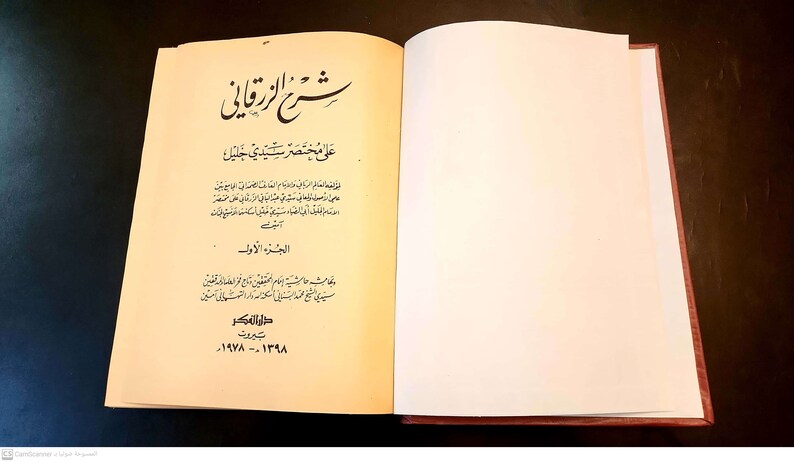 شرح الزرقاني
على مختصر سيدي خليل
لمؤلفه العالم الرباني والإمام العارف الصمداني الجامع بين
علمي الأصول والمعاني سيدي عبد الباقي الزرقاني على مختصر
الإمام الجليل أبي الضياء سيدي خليل أسكنهما الله فسيح الجنان
آمين
الجزء الأول
وبهامشه حاشية إمام المحققين وتاج فخر العلماء المدققين
سيدي الشيخ محمد البناني أسكنه الله دار التهاني آمين
دار الفكر
بيروت
١٣٩٨ هـ - ١٩٧٨ م
CS CamScanner الممسوحة ضوئيا بـ